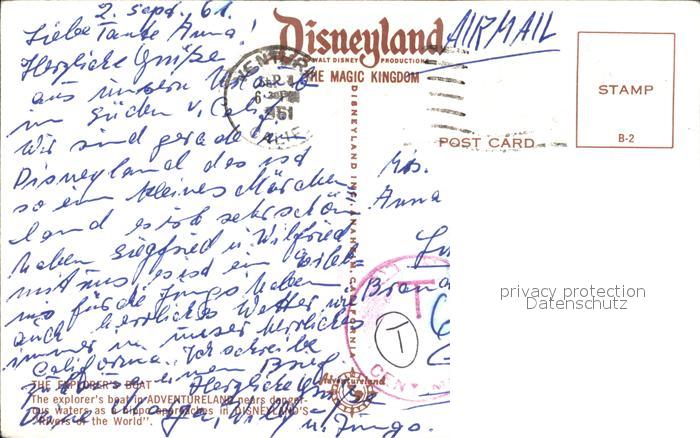 2. Sept. 61.
Liebe Tante Anna!
Herzliche Grüße
aus unserm Urlaub
im Süden v. Calif.
Wir sind gerade in
Disneyland das ist
so ein kleines Märchen
land es ist sehr schön
haben Siegfried u. Wilfried
mit uns es ist ein
für die Jungs
auch herrliches Wetter wie
immer in unser herrliches
California. Ich schreibe
einen Brief
Herzliche Grüße
Deine Willy u. Jungs.
THE EXPLORER'S BOAT
The explorer's boat in ADVENTURELAND nears danger-
ous waters as a hippo approaches in DISNEYLAND'S
"Rivers of the World".
Disneyland
WALT DISNEY PRODUCTIONS
THE MAGIC KINGDOM
AIRMAIL
VENTURA
SEP
6 PM
1961
CALIF
DISNEYLAND INC., ANAHEIM, CALIFORNIA
Adventureland
POST CARD
STAMP
B-2
Mrs.
Anna
T
T
CENT
privacy protection
Datenschutz